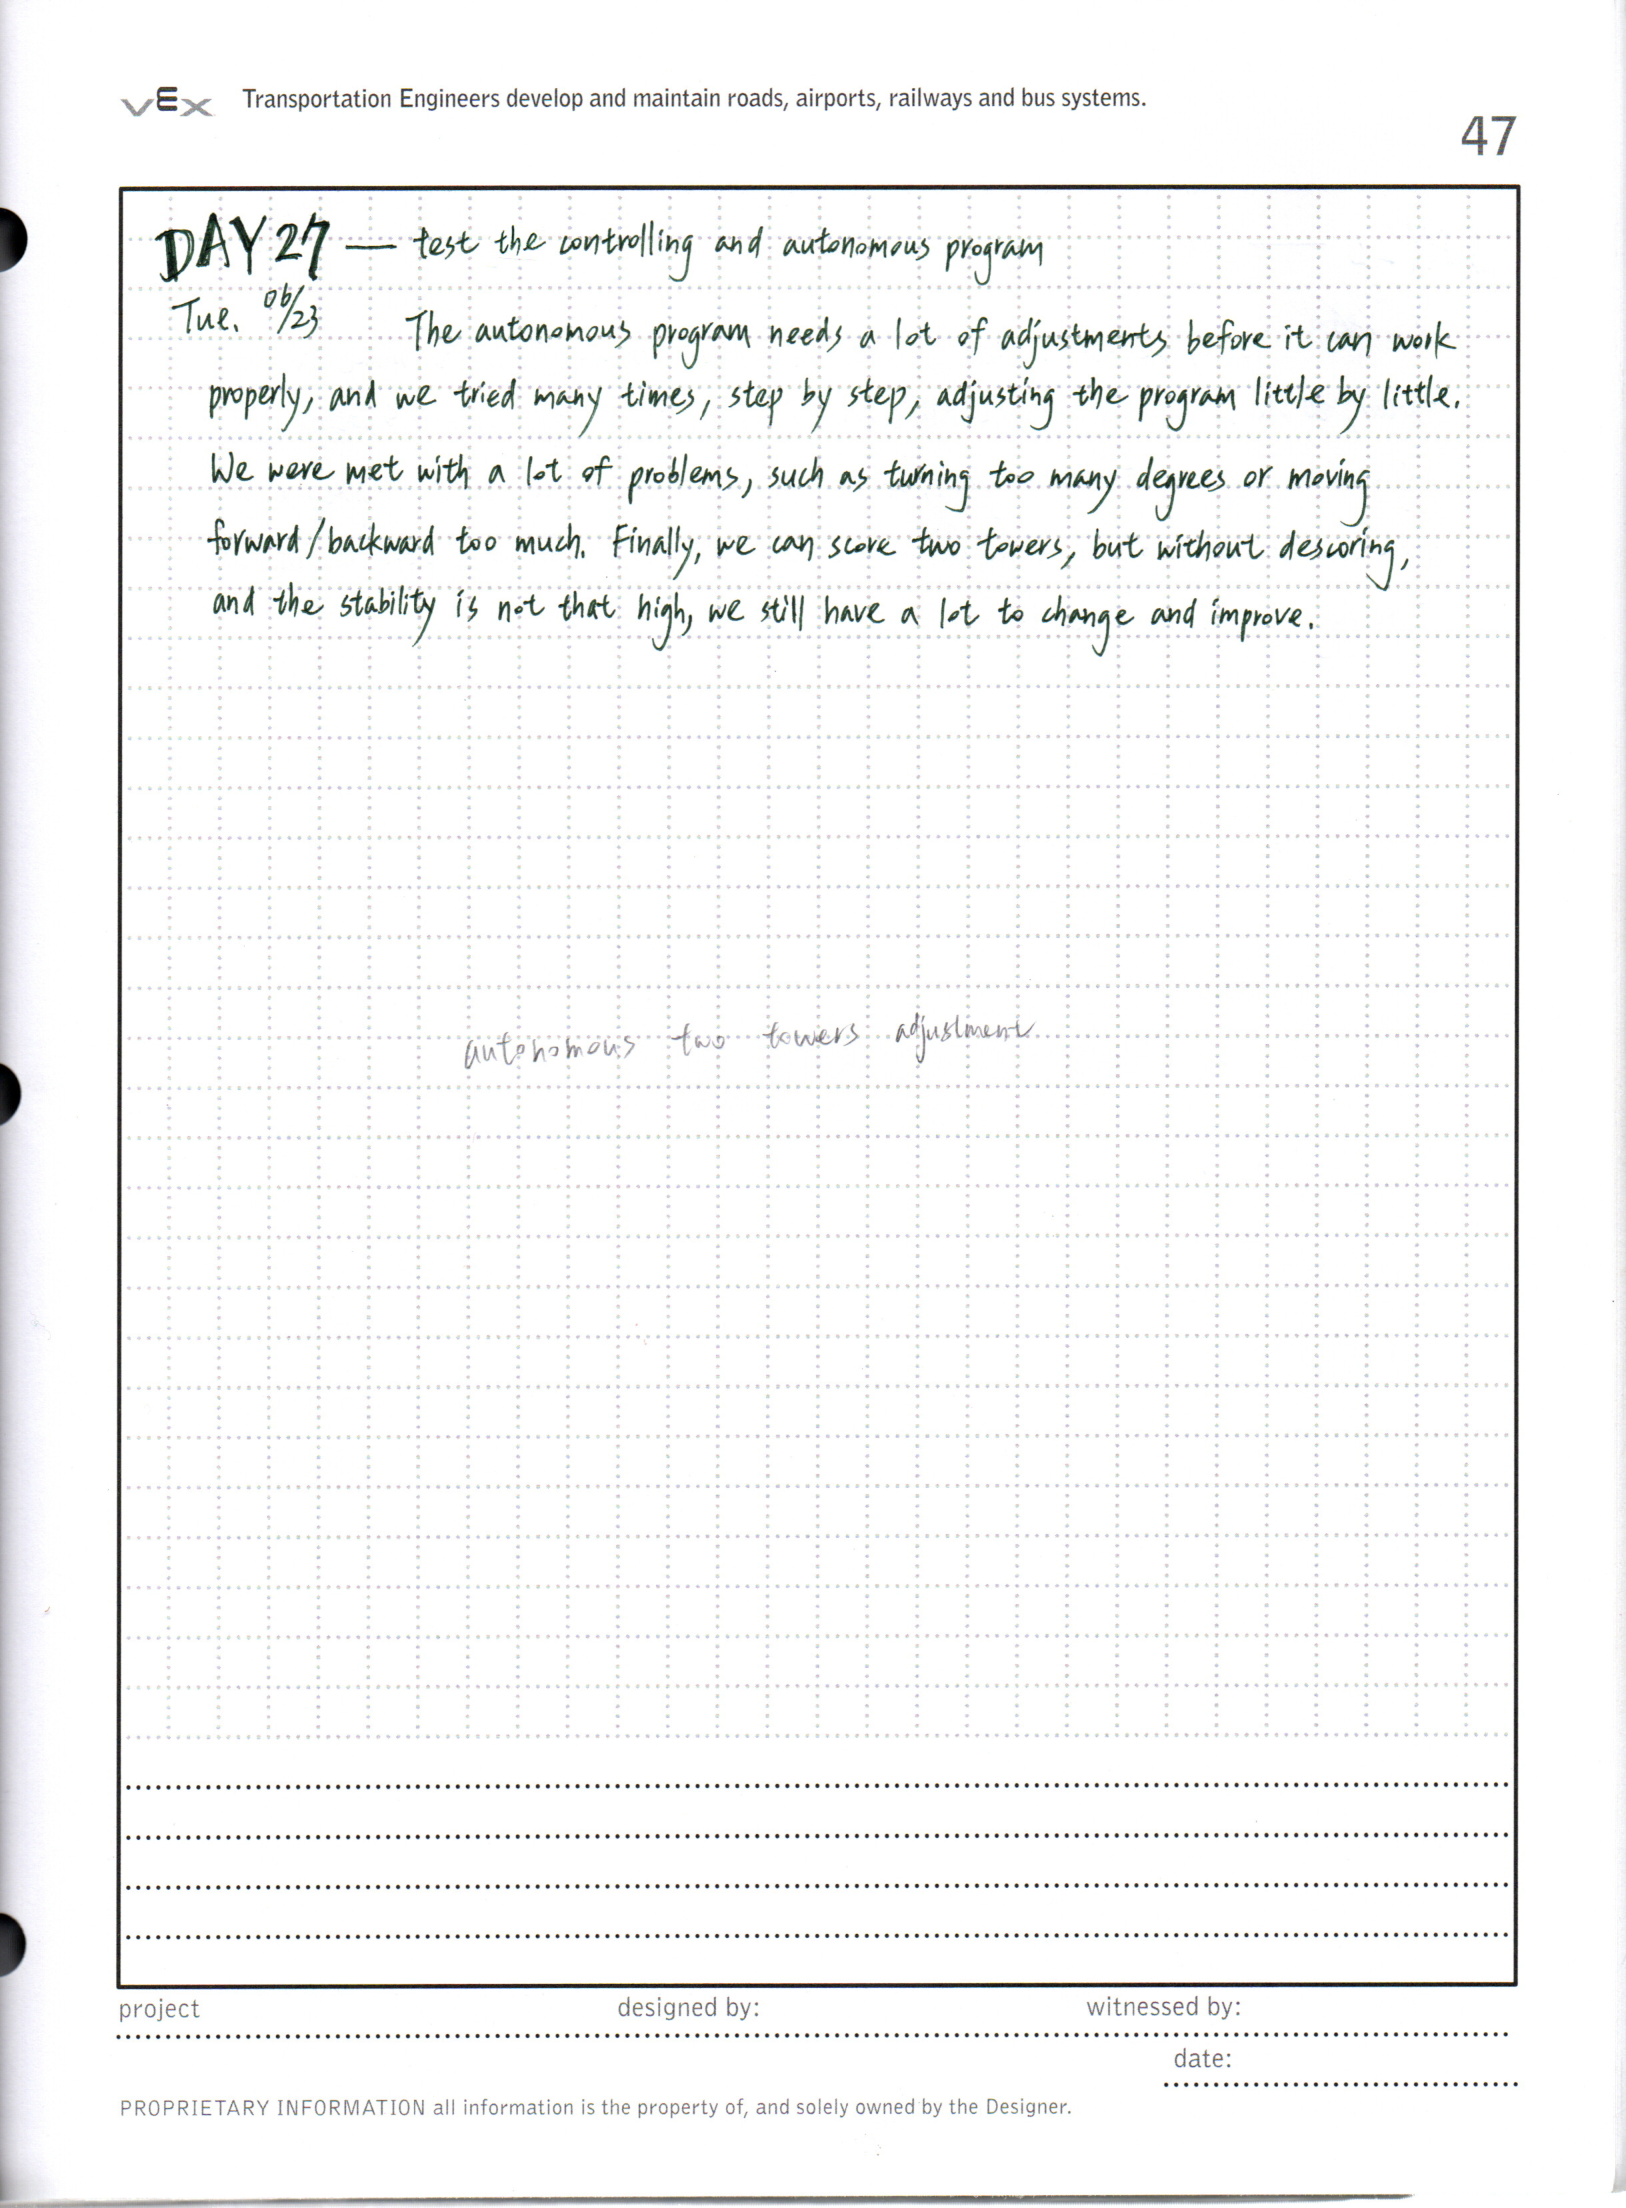 VEX Transportation Engineers develop and maintain roads, airports, railways and bus systems.
47
DAY 27 — test the controlling and autonomous program
Tue. 06/23
The autonomous program needs a lot of adjustments before it can work
properly, and we tried many times, step by step, adjusting the program little by little.
We were met with a lot of problems, such as turning too many degrees or moving
forward/backward too much. Finally, we can score two towers, but without descoring,
and the stability is not that high, we still have a lot to change and improve.
autonomous two towers adjustment
project designed by: witnessed by:
date:
PROPRIETARY INFORMATION all information is the property of, and solely owned by the Designer.